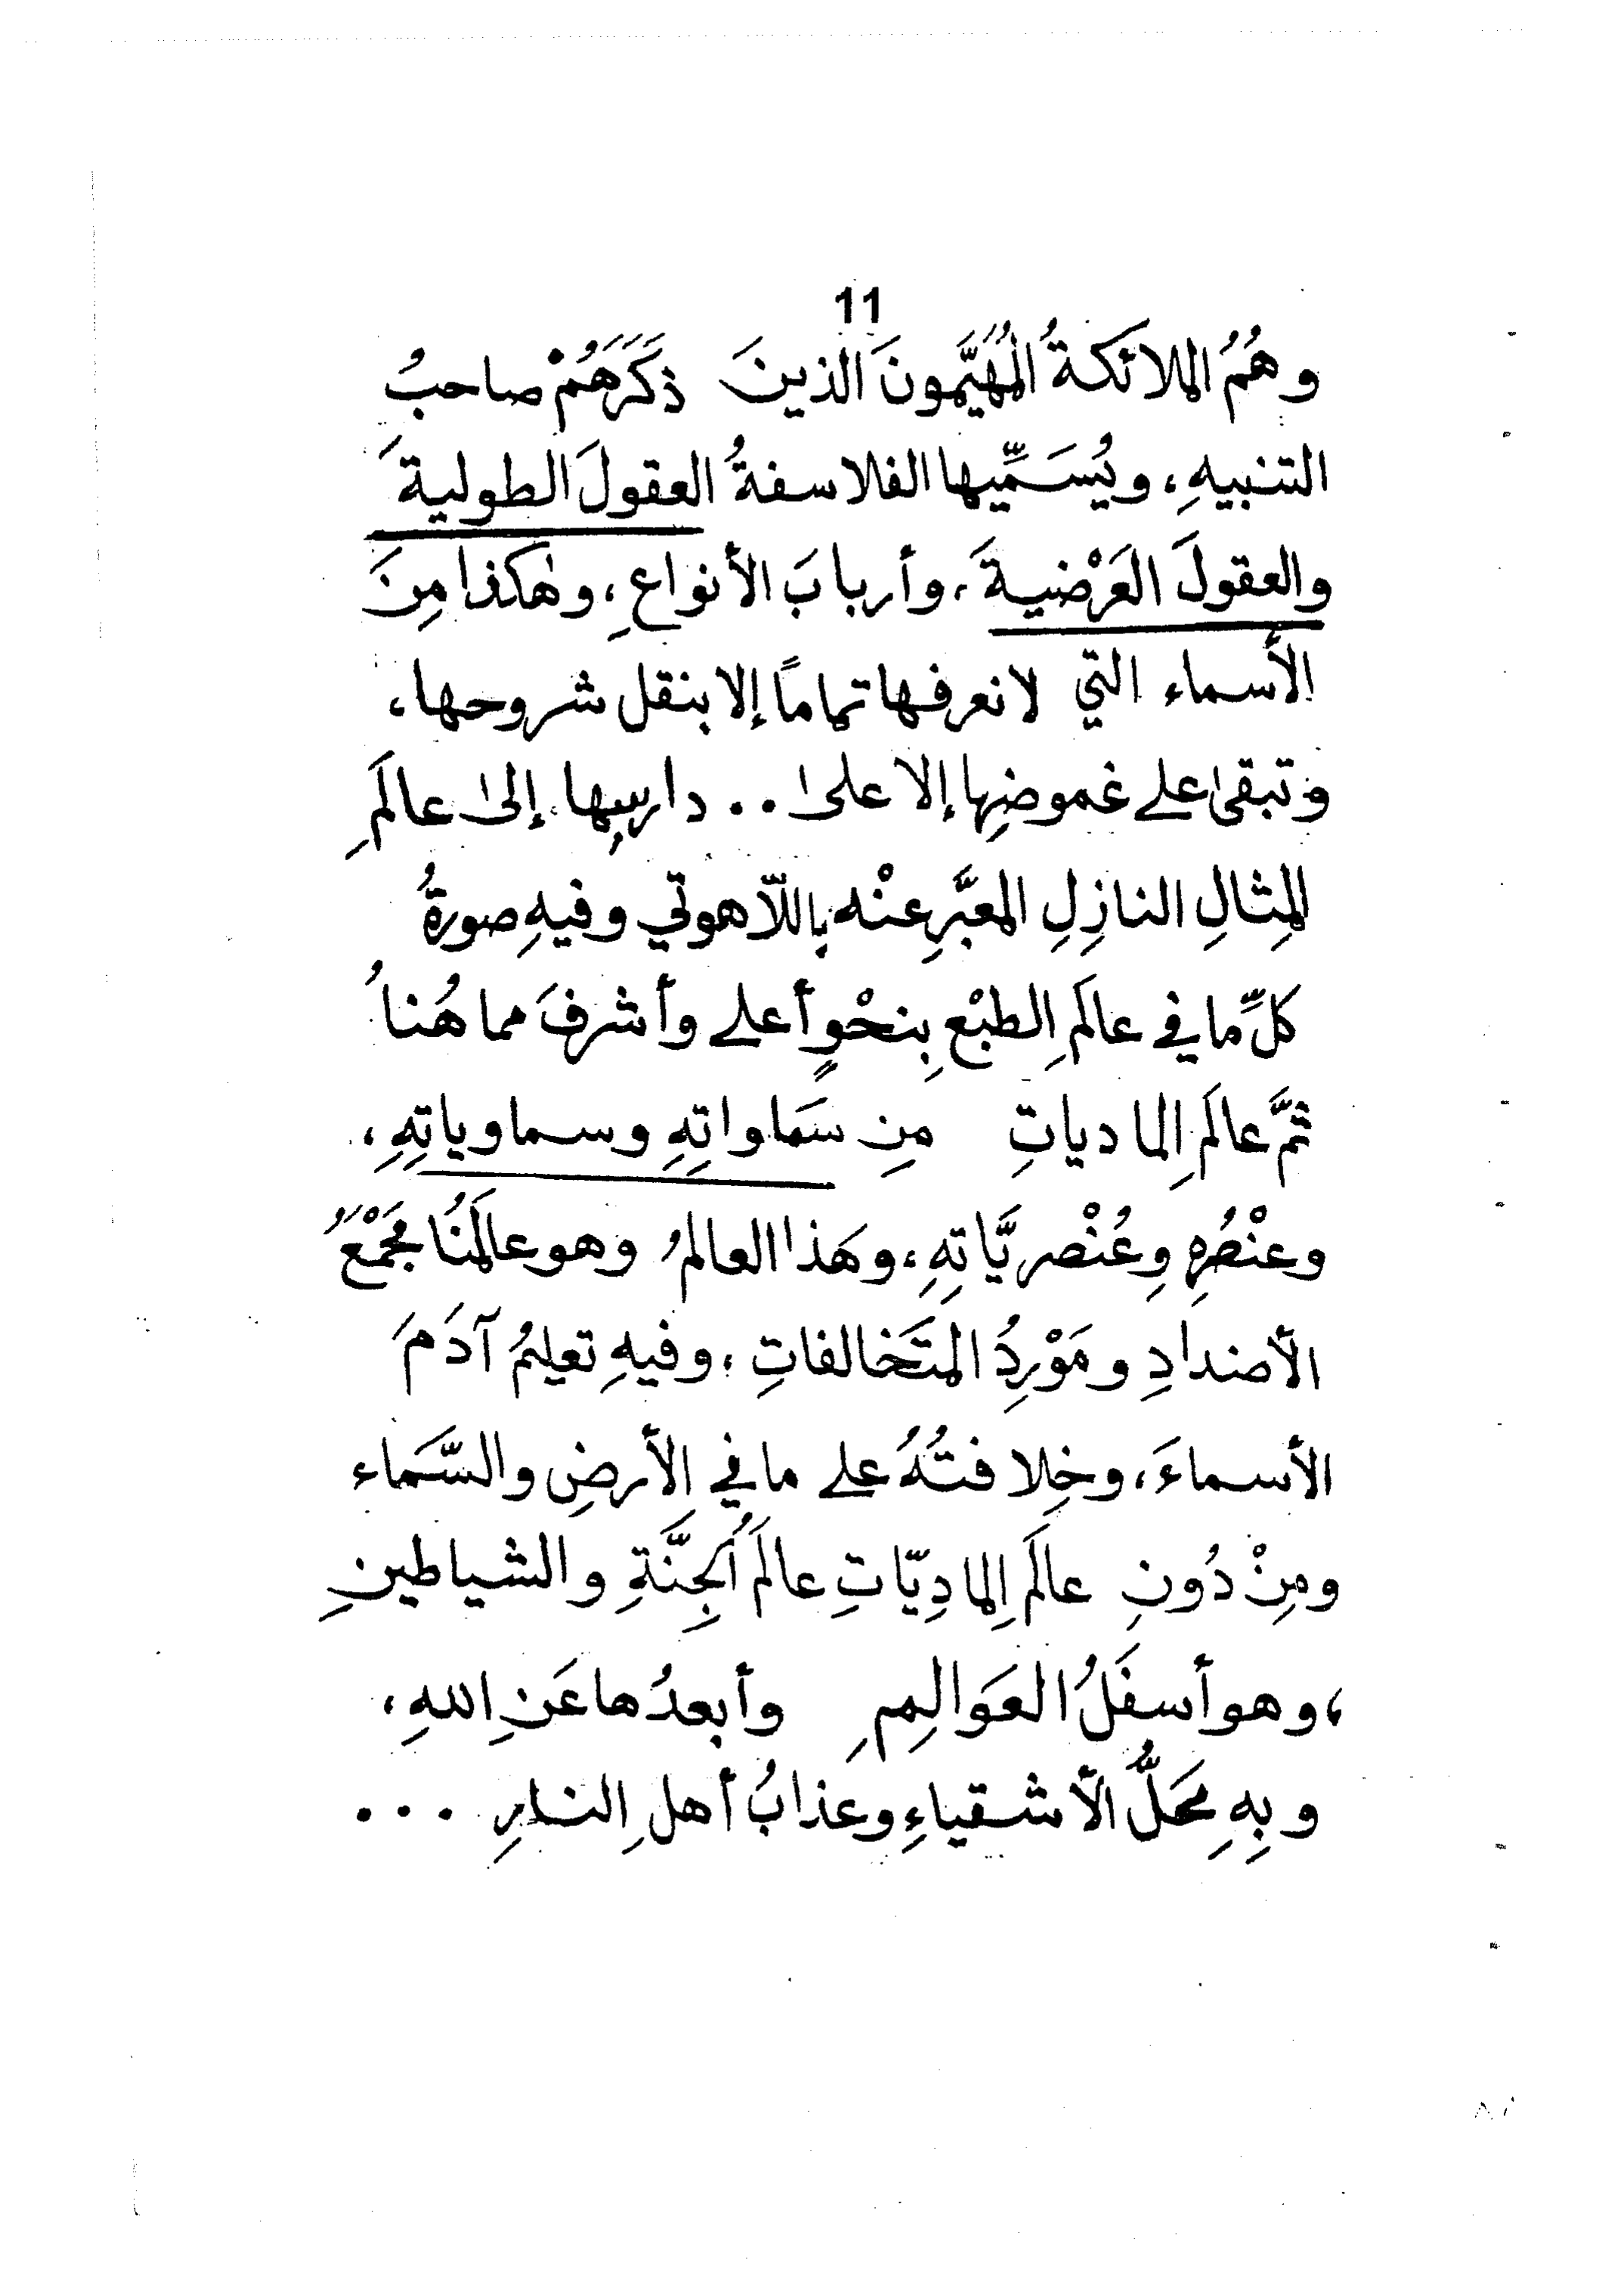 11
وهُمُ الملائكةُ المُهَيَّمونَ الذينَ ذكَرَهَمُْ صاحبُ
التنبيهِ، ويُسَمِّيها الفلاسفةُ العقولَ الطوليةَ
والعقولَ العَرْضيةَ، وأربابَ الأنواعِ، وهٰكذا مِنَ
الأسماء التي لانعرفها تماماً إلا بنقل شروحها،
وتبقىٰ على غموضِها إلا علىٰ.. دارسِها. إلىٰ عالَمِ
المِثالِ النازِلِ المعبَّرِ عنْه باللّاهوتي وفيهِ صورةُ
كلِّ ما في عالَمِ الطبْعِ بِنحْوٍ أعلى وأشرفَ مما هُناُ
ثمَّ عالَمِ الماديات مِن سَماواتِهِ وسماوياتِهِ،
وعنْصُرِه وِعُنْصريَّاتِهِ، وهَذا العالمُ وهو عالَمُنَا مَجْمَعُ
الأضدادِ ومَوْرِدُ المتَخالفاتِ، وفيهِ تعليمُ آدَمَ
الأسماءَ، وخِلافتُهُ على مافي الأرضِ والسَّمَاء
ومِنْ دُونِ عالَمِ المادِيّاتِ عالَمُ الجِنَّةِ والشياطينِ
، وهو أسفَلُ العَوَالِمِ وأبعدُها عَنِ اللهِ،
وبِهِ مَحَلُّ الأشقياءِ وعذابُ أهلِ النارِ ...